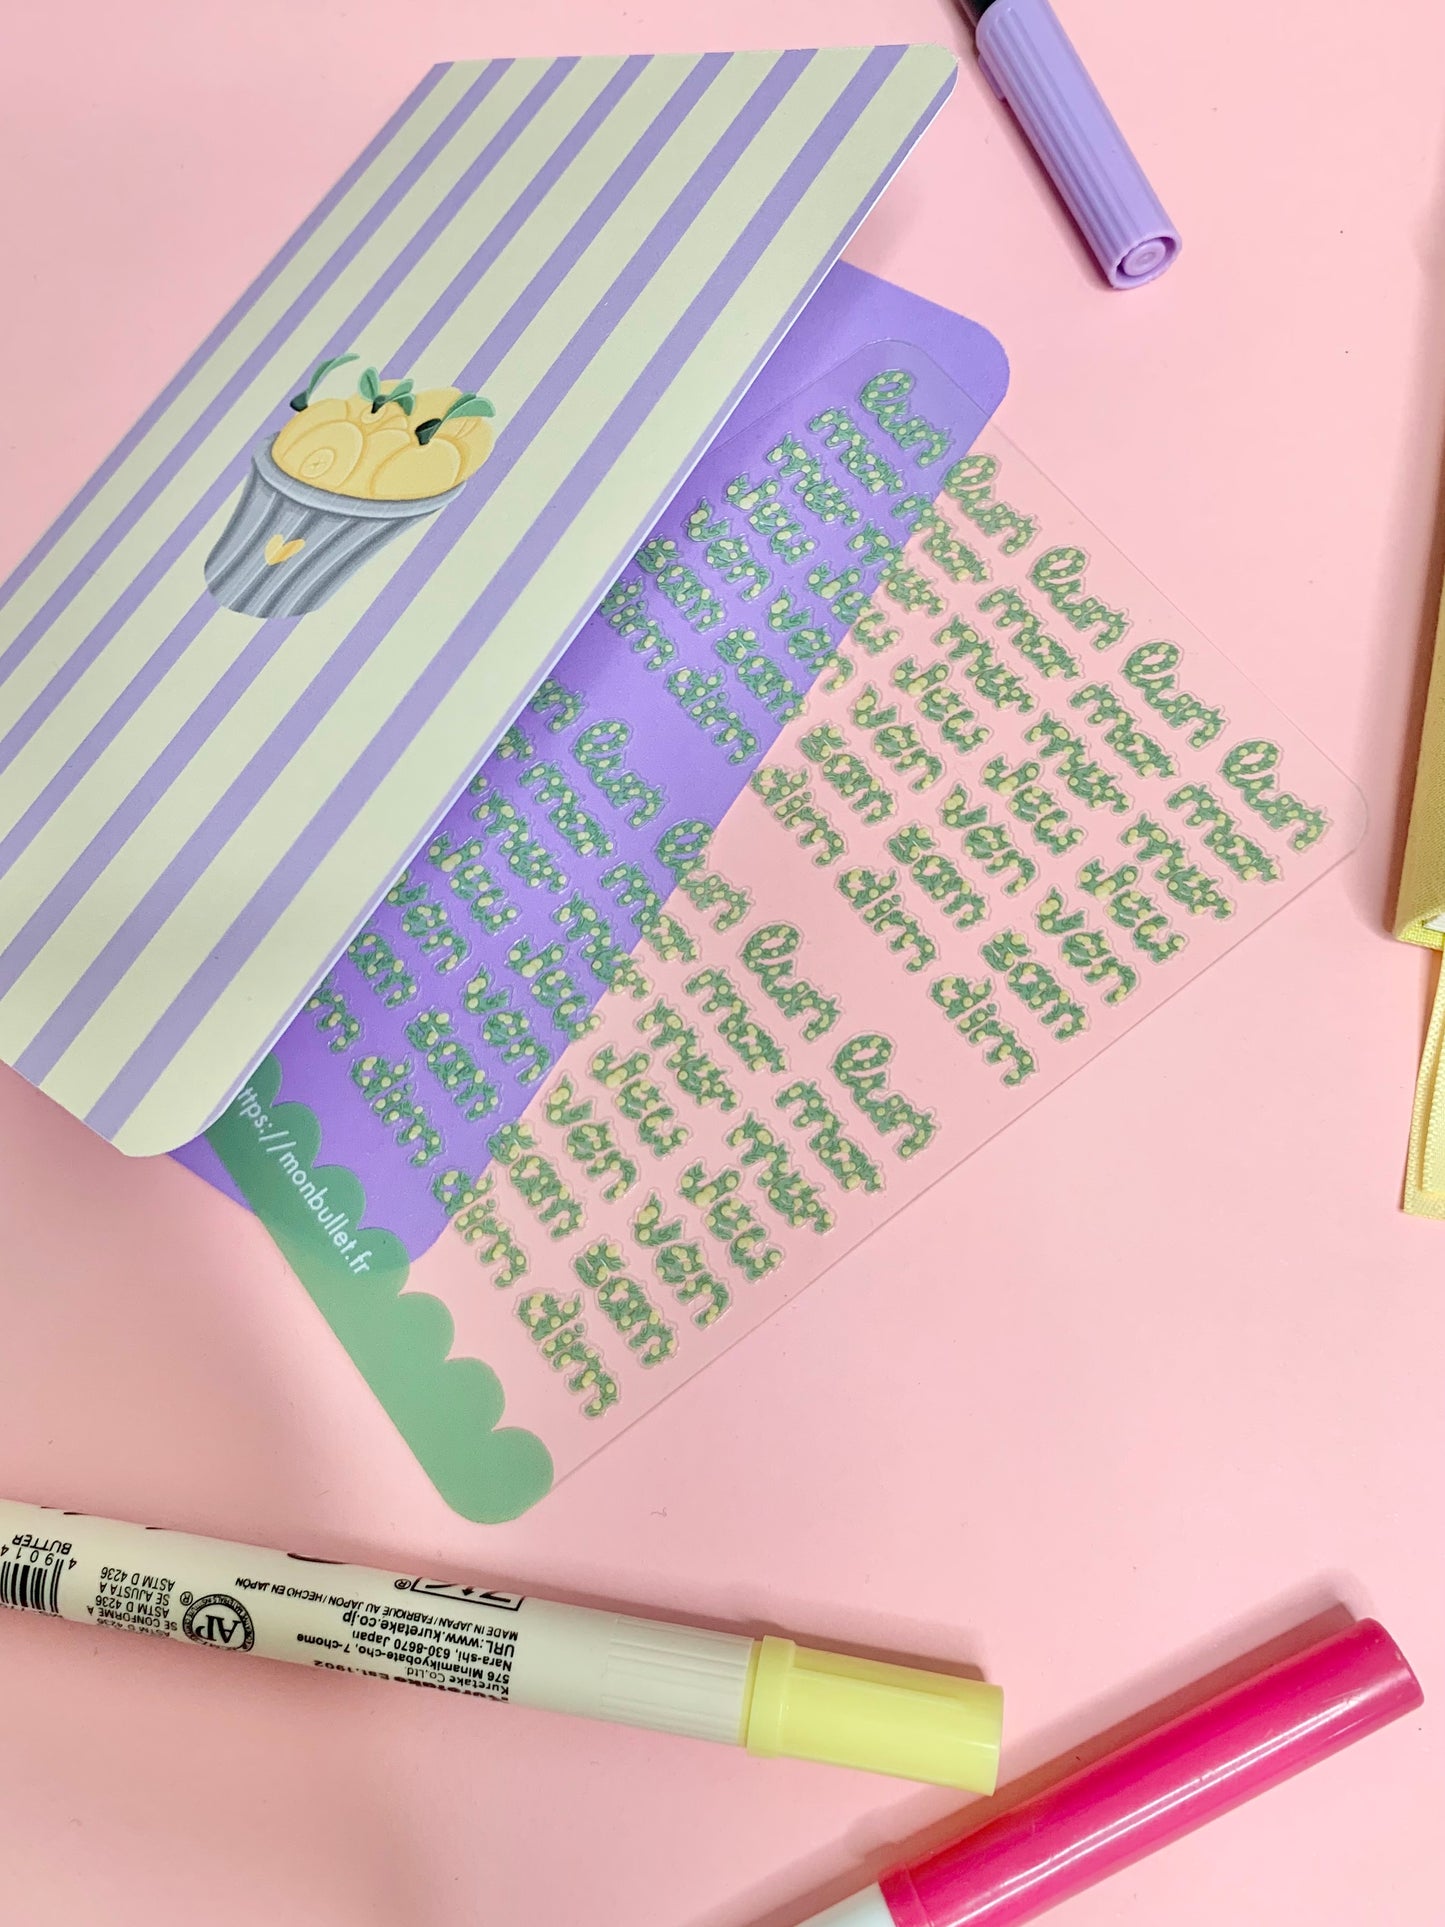 lun lun lun lun lun
mar mar mar mar mar
mer mer mer mer mer
jeu jeu jeu jeu jeu
ven ven ven ven ven
sam sam sam sam sam
dim dim dim dim dim
lun lun lun lun
mar mar mar mar
mer mer mer mer
jeu jeu jeu jeu
ven ven ven ven
sam sam sam
dim dim dim
ttps://monbullet.fr
Kuretake Est.1902
Kuretake Co.,Ltd.
576 Minamikyobate-cho, 7-chome
Nara-shi, 630-8670 Japan
URL:www.kuretake.co.jp
MADE IN JAPAN / FABRIQUE AU JAPON / HECHO EN JAPÓN
ZIG®
AP
ASTM D 4236
SE CONFORME A
ASTM D 4236
SE AJUSTA A
ASTM D 4236
BUTTER
4 9014